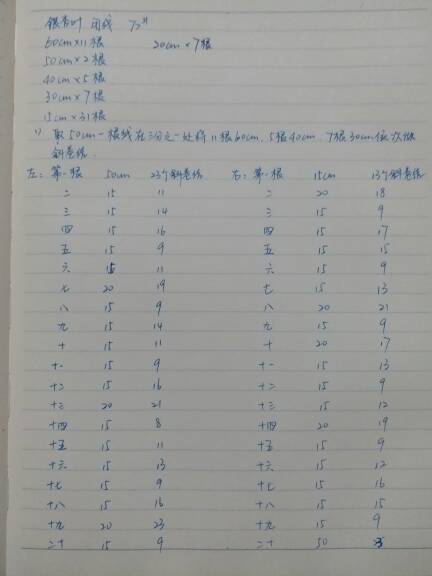 银杏叶 闭线 72#
60cm×11根 20cm×7根
50cm×2根
40cm×5根
30cm×7根
15cm×31根
1) 取50cm一根线在三分之一处将11根60cm、5根40cm、7根30cm依次做
斜卷结.
左: 第一根 50cm 23个斜卷结 右: 第一根 15cm 13个斜卷结
二 15 11 二 20 18
三 15 14 三 15 9
四 15 16 四 15 17
五 15 9 五 15 15
六 15 11 六 15 9
七 20 19 七 15 13
八 15 9 八 20 21
九 15 14 九 15 9
十 15 11 十 20 17
十一 15 9 十一 15 13
十二 15 16 十二 15 9
十三 20 21 十三 15 12
十四 15 8 十四 20 19
十五 15 11 十五 15 9
十六 15 13 十六 15 12
十七 15 9 十七 15 16
十八 15 16 十八 15 15
十九 20 23 十九 15 9
二十 15 9 二十 50